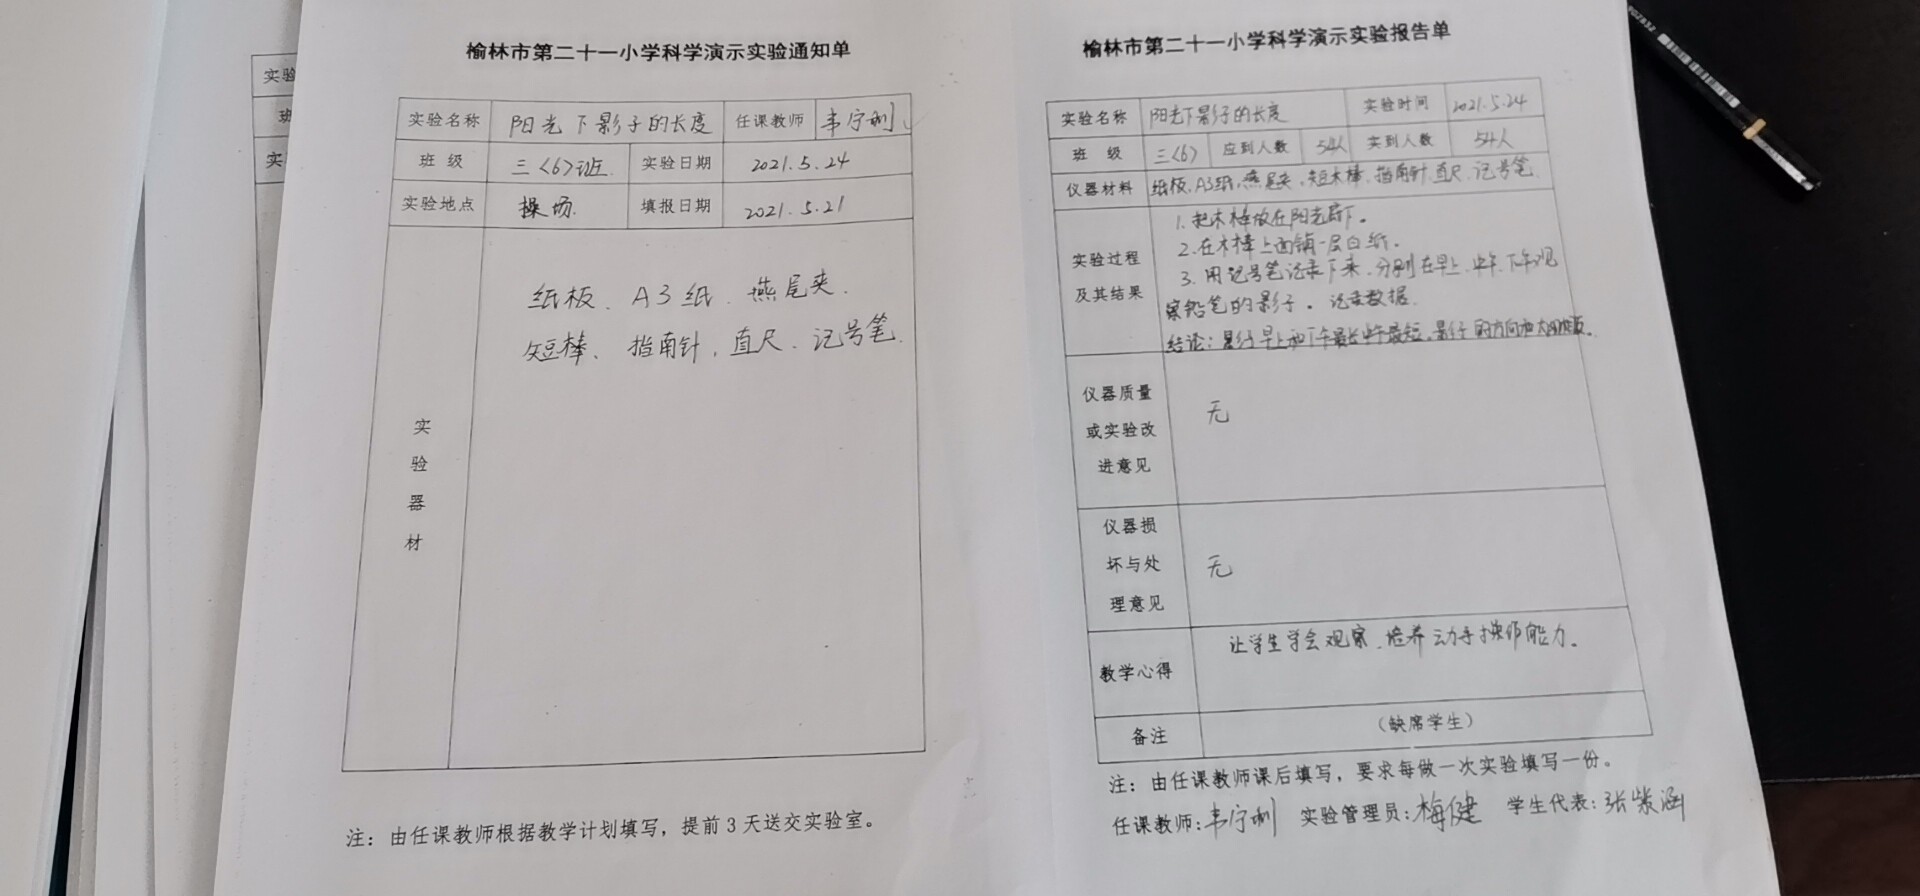 榆林市第二十一小学科学演示实验通知单
实验名称 阳光下影子的长度 任课教师 韦宁利
班 级 三〈6〉班 实验日期 2021.5.24
实验地点 操场 填报日期 2021.5.21
实验器材
纸板、A3纸、燕尾夹、
短棒、指南针,直尺、记号笔
注:由任课教师根据教学计划填写,提前3天送交实验室。
榆林市第二十一小学科学演示实验报告单
实验名称 阳光下影子的长度 实验时间 2021.5.24
班 级 三〈6〉 应到人数 54人 实到人数 54人
仪器材料 纸板、A3纸、燕尾夹、短木棒、指南针、直尺、记号笔
实验过程
及其结果
1.把木棒放在阳光底下。
2.在木棒上面铺一层白纸。
3.用记号笔记录下来,分别在早上、中午、下午观
察铅笔的影子。记录数据.
结论:影子早上和下午最长中午最短,影子的方向和太阳
仪器质量
或实验改
进意见
无
仪器损
坏与处
理意见
无
教学心得 让学生学会观察、培养动手操作能力。
备注 (缺席学生)
注:由任课教师课后填写,要求每做一次实验填写一份。
任课教师:韦宁利 实验管理员:梅健 学生代表:张紫涵
实验
班
实